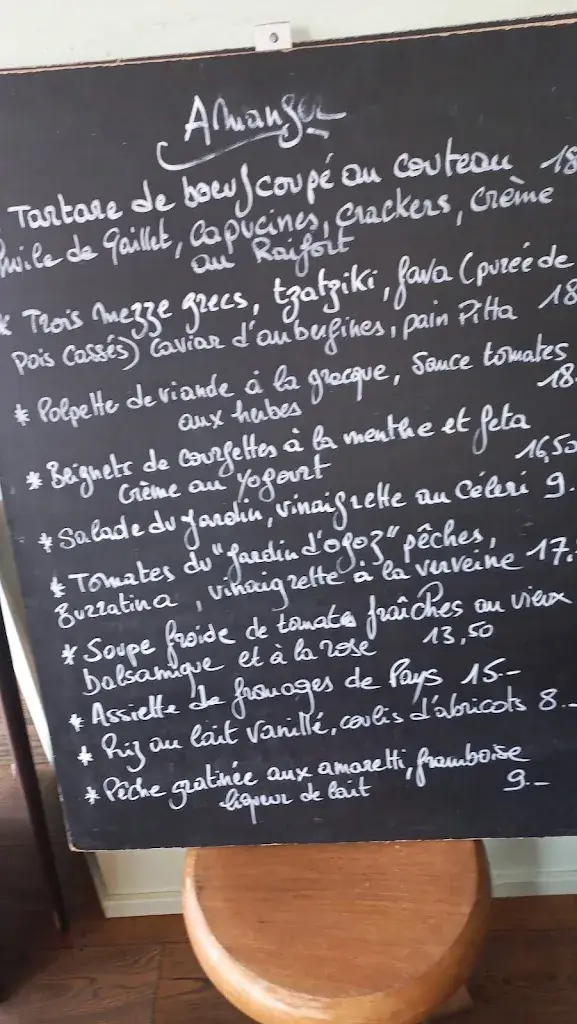 A Manger
Tartare de boeuf coupé au couteau 18
huile de Gaillet, capucines, crackers, crème
au Raifort
* Trois mezze grecs, tzatziki, fava (purée de
pois cassés) caviar d'aubergines, pain Pitta 18
* Polpette de viande à la grecque, Sauce tomates
aux herbes 18.
* Beignets de courgettes à la menthe et feta
Crème au yogourt 16,50
* Salade du jardin, vinaigrette au Céleri 9.
* Tomates du "jardin d'ogoz" pêches,
Burratina, vinaigrette à la verveine 17.
* Soupe froide de tomates fraîches au vieux
balsamique et à la rose 13,50
* Assiette de fromages de Pays 15.-
* Riz au lait vanillé, coulis d'abricots 8.-
* Pêche gratinée aux amaretti, framboise
liqueur de lait 9.-